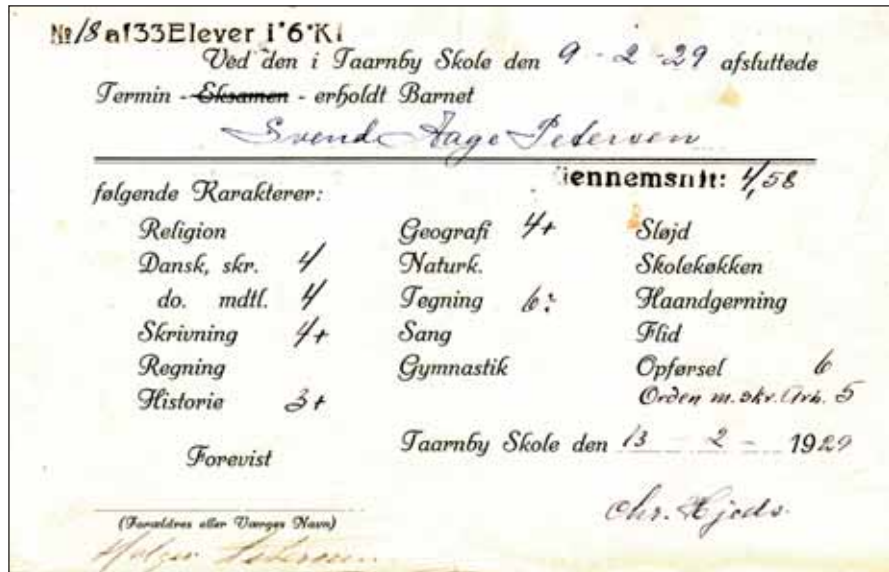 № 18 af 33 Elever i 6 Kl
Ved den i Taarnby Skole den 9 - 2 - 29 afsluttede
Termin - Eksamen - erholdt Barnet
Svend Aage Petersen
følgende Karakterer:
iennemsnit: 4,58
Religion
Dansk, skr. 4
do. mdtl. 4
Skrivning 4+
Regning
Historie 3+
Geografi 4+
Naturk.
Tegning 6÷
Sang
Gymnastik
Sløjd
Skolekøkken
Haandgerning
Flid
Opførsel 6
Orden m. skr. Arb. 5
Forevist
Taarnby Skole den 13 - 2 - 1929
(Forældres eller Værges Navn)
Holger Petersen
Chr.